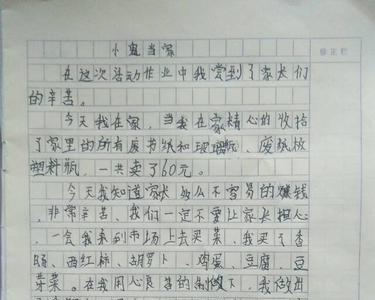 小鬼当家
在这次活动作业中我尝到了家长们
的辛苦。
今天我在家,当我在家精心的收拾
了家里的所有废书纸和玻璃瓶、废纸板
塑料瓶,一共卖了60元。
今天我知道家长多么不容易的赚钱
,非常辛苦、我们一定不要让家长担心
,一会我来到市场上去买菜,我买了香
肠、西红柿、胡萝卜、鸡蛋、豆腐、豆
芽菜。在我用心良苦的制做下,我做出